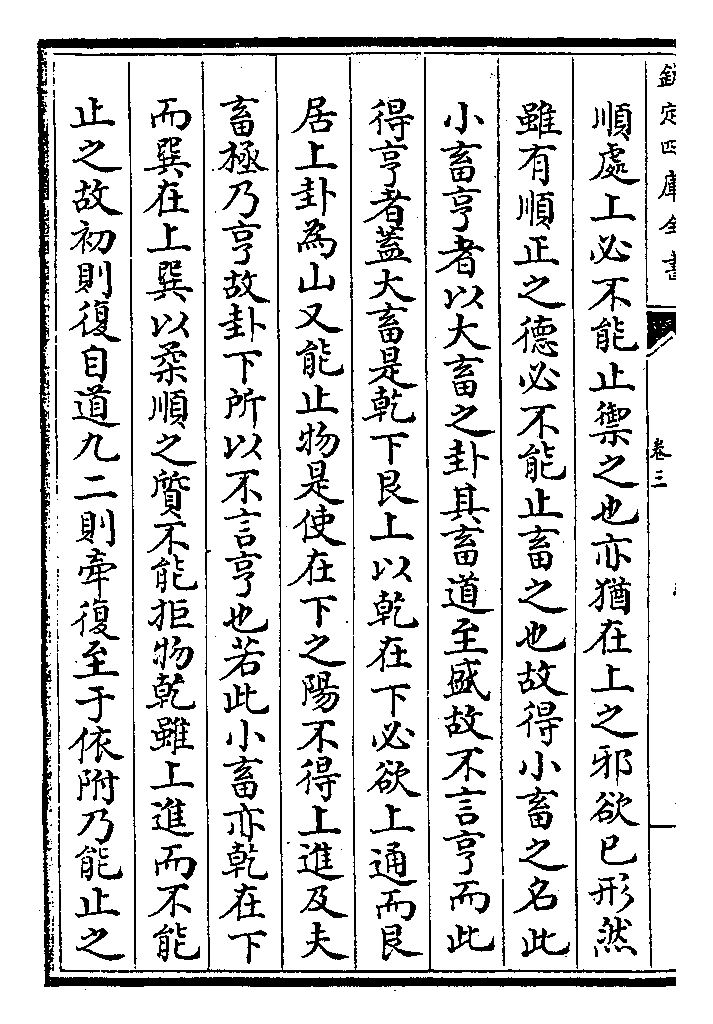 欽定四庫全書
卷三
順處上必不能止禦之也亦猶在上之邪欲已形然
雖有順正之德必不能止畜之也故得小畜之名此
小畜亨者以大畜之卦其畜道至盛故不言亨而此
得亨者蓋大畜是乾下艮上以乾在下必欲上通而艮
居上卦為山又能止物是使在下之陽不得上進及夫
畜極乃亨故卦下所以不言亨也若此小畜亦乾在下
而巽在上巽以柔順之質不能拒物乾雖上進而不能
止之故初則復自道九二則牽復至于依附乃能止之